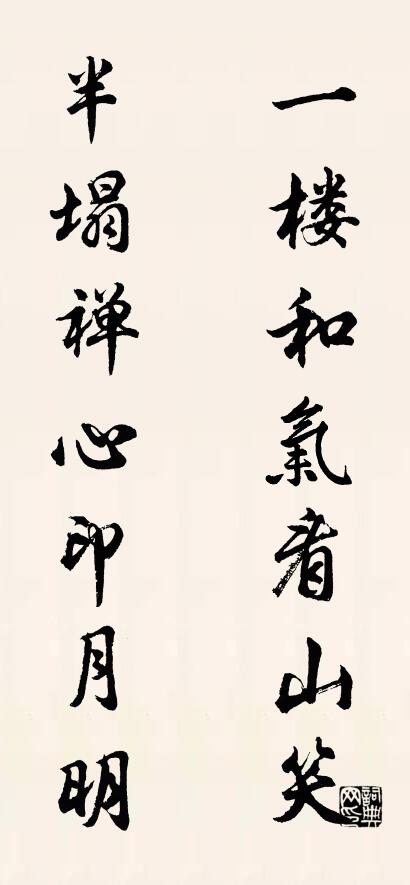 一楼和氣看山笑
半塌禅心印月明
詞典網